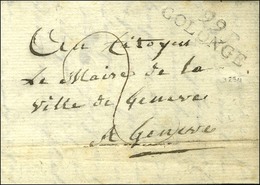 99
COLONGE
Au Citoyen
Le Maire de la
ville de Geneve
A Geneve